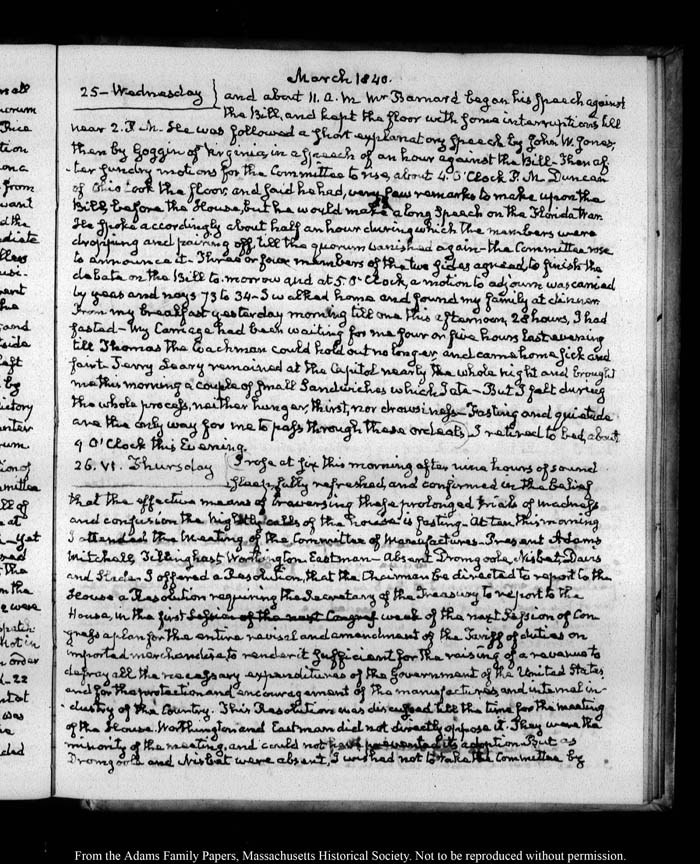 March 1840.
25 – Wednesday } and about 11. A.M. Mr Barnard began his speech against
the Bill, and kept the floor with some interruptions till
near 2. P.M. He was followed a short explanatory speech by John W. Jones,
then by Goggin of Virginia, in a speech of an hour against the Bill – Then af-
-ter sundry motions for the Committee to rise, about 4. O'Clock P.M. Duncan
of Ohio took the floor, and said he had, very few remarks to make upon the
Bill, before the House, but he would make a long Speech on the Florida War.
He spoke accordingly about half an hour during which the members were
dropping and pairing off, till the quorum vanished again – the Committee rose
to announce it – Three or four members of the two sides agreed, to finish the
debate on the Bill to-morrow and at 5. O'Clock, a motion to adjourn was carried
by yeas and nays 73 to 34 – I walked home and found my family at dinner.
From my breakfast yesterday morning till one this afternoon, 28 hours, I had
fasted – My Carriage had been waiting for me four or five hours last evening
till Thomas the Coachman could hold out no longer, and came home sick and
faint. Jerry Leary remained at the Capitol nearly the whole night and brought
me this morning a couple of small Sandwiches which I ate – But I felt during
the whole process, neither hunger, thirst, nor drowsiness – Fasting and quietude
are the only way for me to pass through these ordeals. I retired to bed, about
9 O'Clock this Evening.
26. VI. Thursday I rose at six this morning after nine hours of sound
sleep, fully refreshed, and confirmed in the belief
that the effective means of traversing these prolonged trials of madness
and confusion the nightly calls of the house is fasting – At ten, this morning
I attended the Meeting of the Committee of Manufactures – Present Adams
Mitchell, Tillinghast, Worthington Eastman – Absent Dromgoole, Nisbet, Davis
and Slade. I offered a Resolution, that the Chairman be directed to report to the
House a Resolution requiring the Secretary of the Treasury to report to the
House, in the first Session of the next Congress week of the next Session of Con-
gress a plan for the entire revisal and amendment of the Tariff of duties on
imported merchandize to render it sufficient for the raising of a revenue to
defray all the necessary expenditures of the Government of the United States
and for the protection and encouragement of the manufactures, and internal in-
-dustry of the Country. This Resolution was discussed till the time for the meeting
of the House. Worthington and Eastman did not directly oppose it. They were the
minority of the meeting, and could not have prevented its adoption. But as
Dromgoole and Nisbet were absent, I wished not to take the Committee by
From the Adams Family Papers, Massachusetts Historical Society. Not to be reproduced without permission.